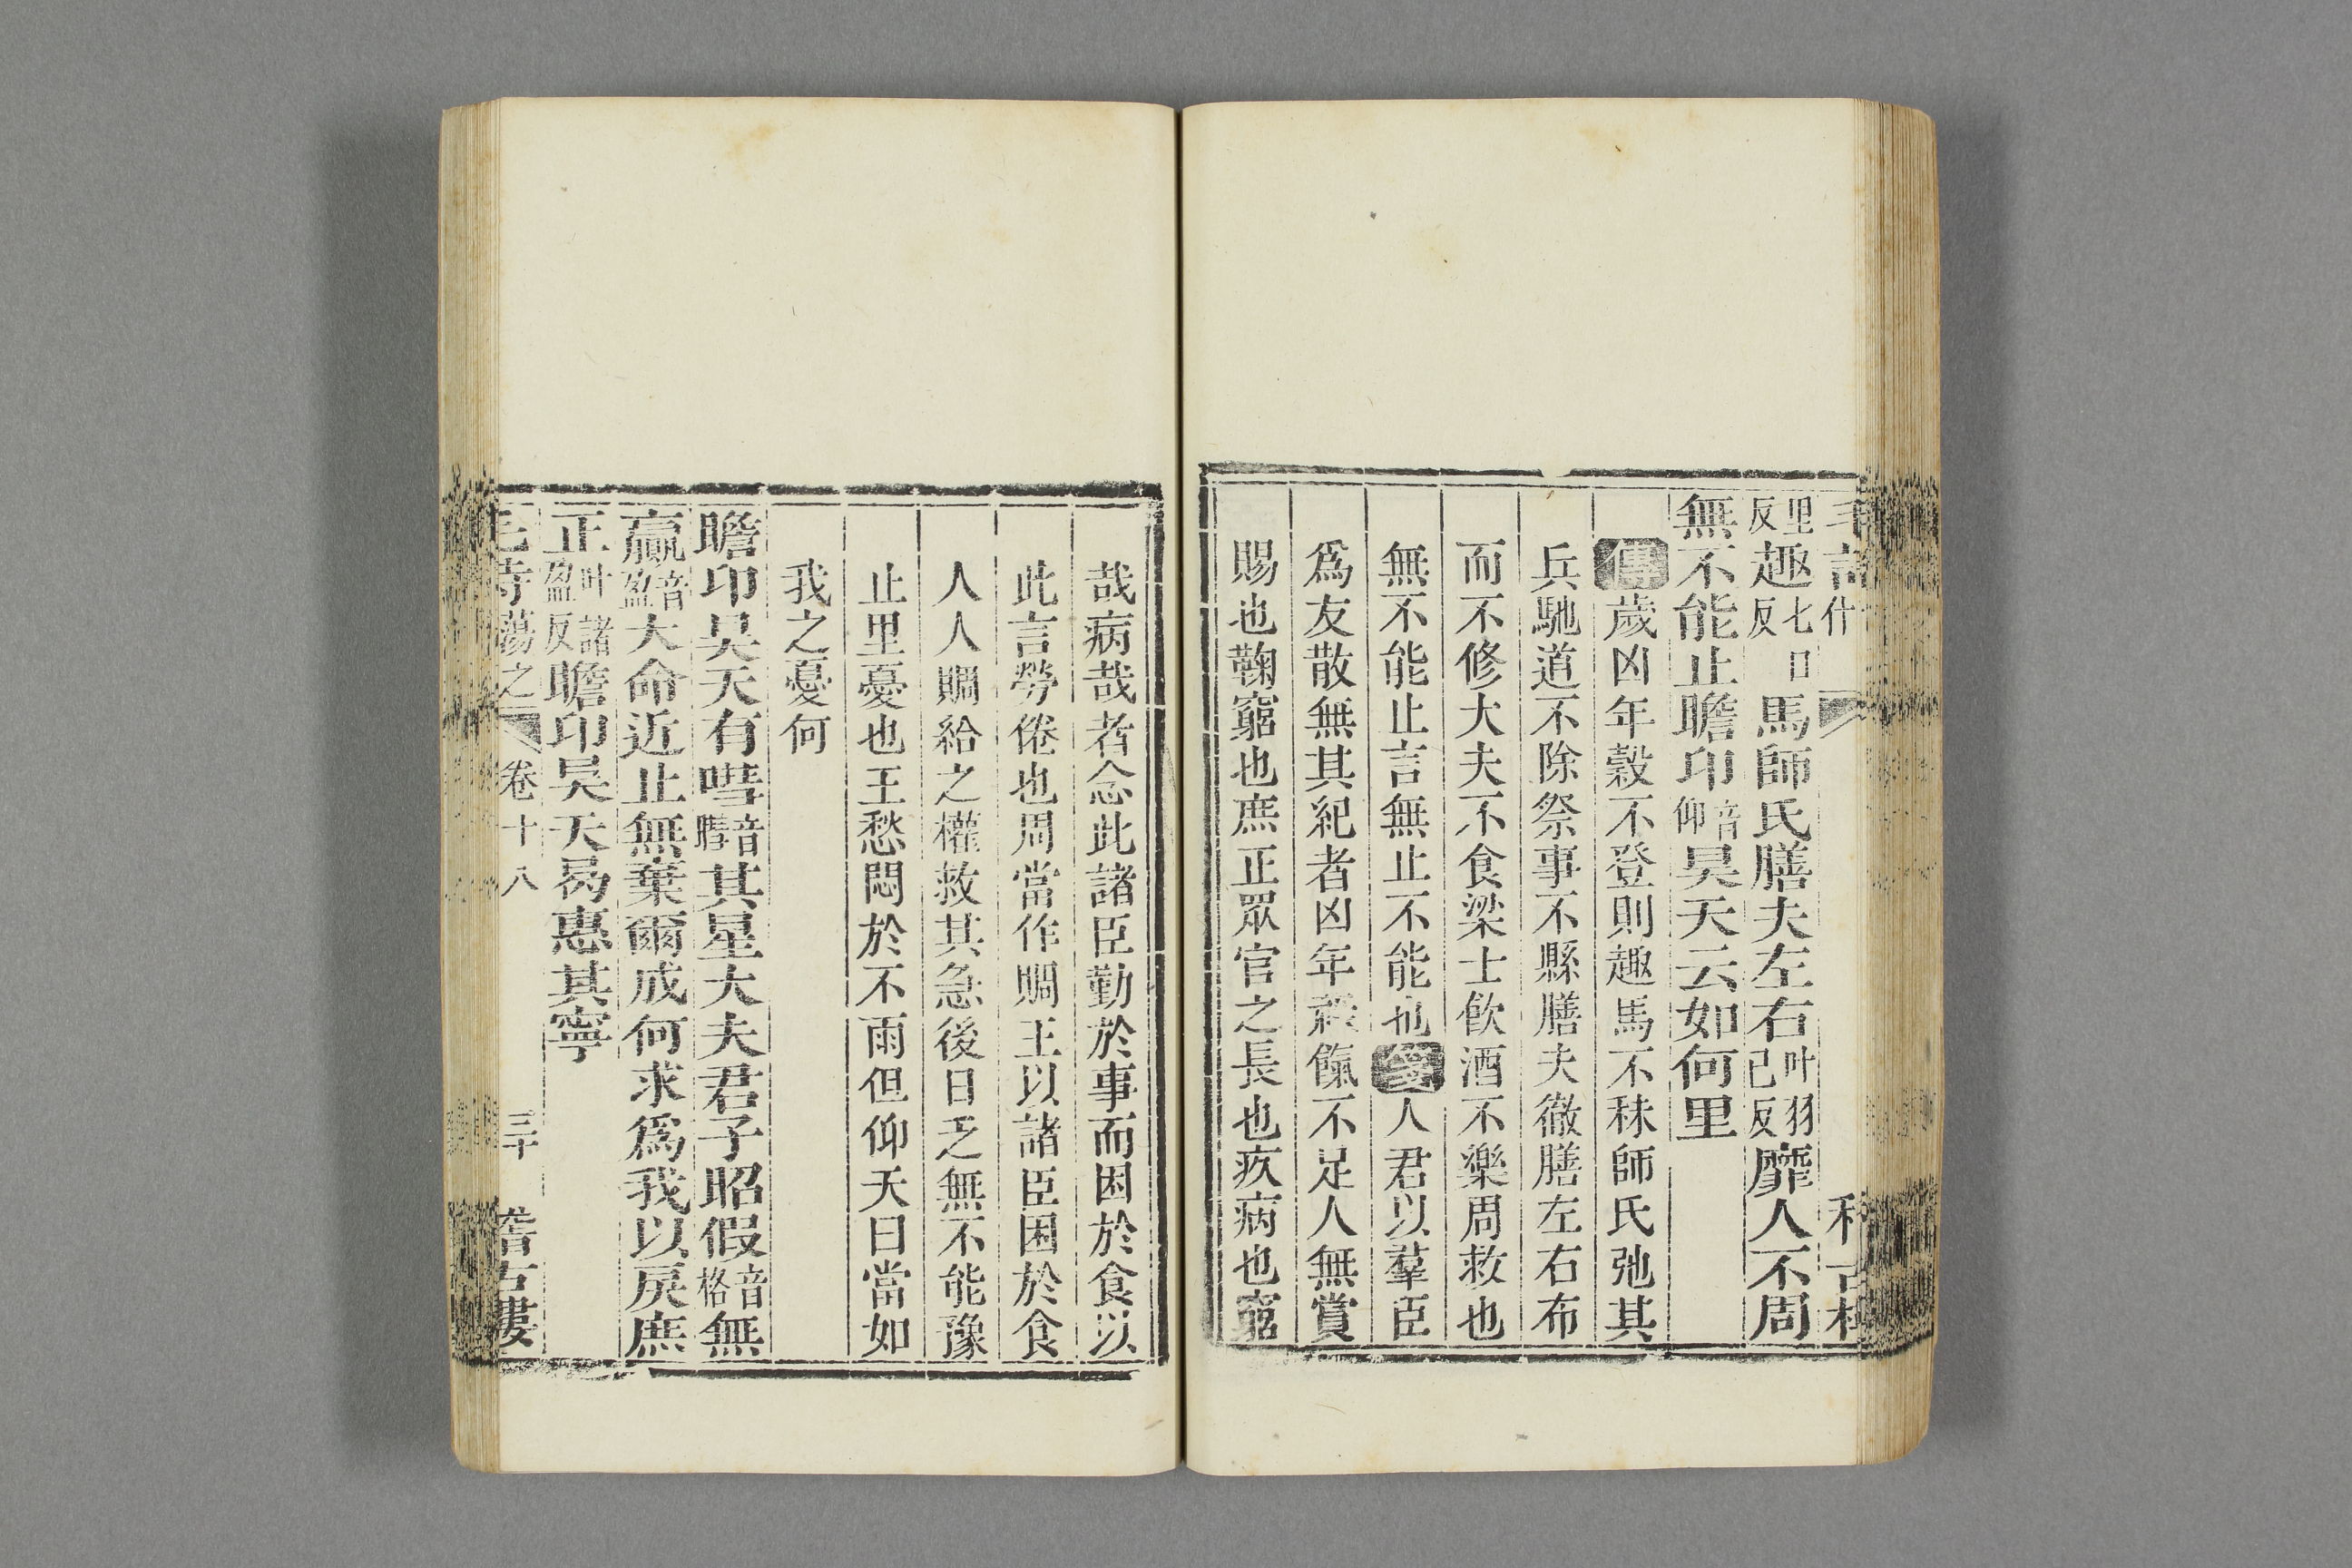 里反趣七口反馬師氏膳夫左右叶羽己反靡人不周
無不能止瞻卬音仰昊天云如何里
傳歲凶年穀不登則趣馬不秣師氏弛其
兵馳道不除祭事不縣膳夫徹膳左右布
而不修大夫不食梁士飲酒不樂周救也
無不能止言無止不能也箋人君以羣臣
爲友散無其紀者凶年祿餼不足人無賞
賜也鞠窮也庶正眾官之長也疚病也窮
哉病哉者念此諸臣勤於事而困於食以
此言勞倦也周當作賙王以諸臣困於食
人人賙給之權救其急後日乏無不能豫
止里憂也王愁悶於不雨但仰天曰當如
我之憂何
瞻卬昊天有嘒音嘒其星大夫君子昭假音格無
贏音盈大命近止無棄爾成何求爲我以戾庶
正叶諸盈反瞻卬昊天曷惠其寧
毛詩蕩之 卷十八 三十 稽古樓